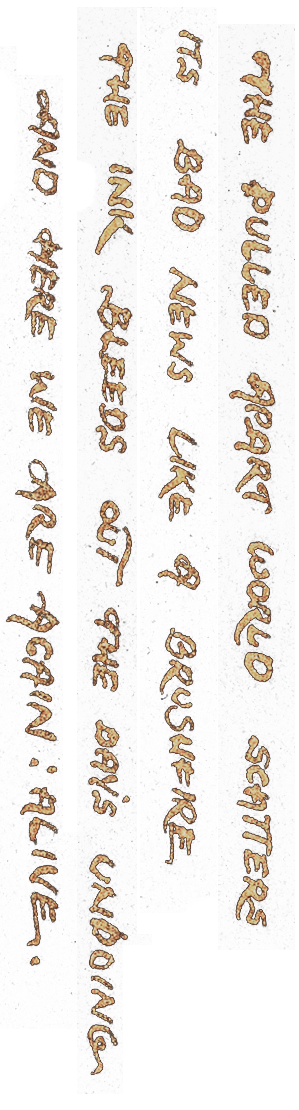 THE PULLED APART WORLD SCATTERS
ITS BAD NEWS LIKE A BRUSHFIRE,
THE INK BLEEDS OUT THE DAY'S UNDOING
AND HERE WE ARE AGAIN: ALIVE.